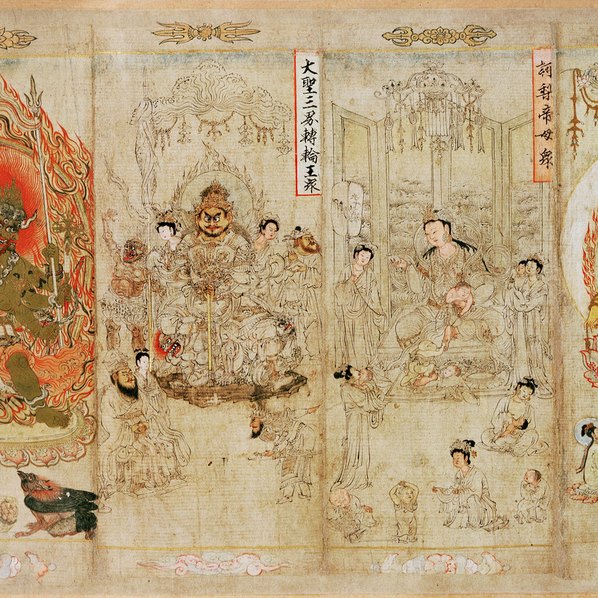 訶梨帝母衆
大聖三界轉輪王衆